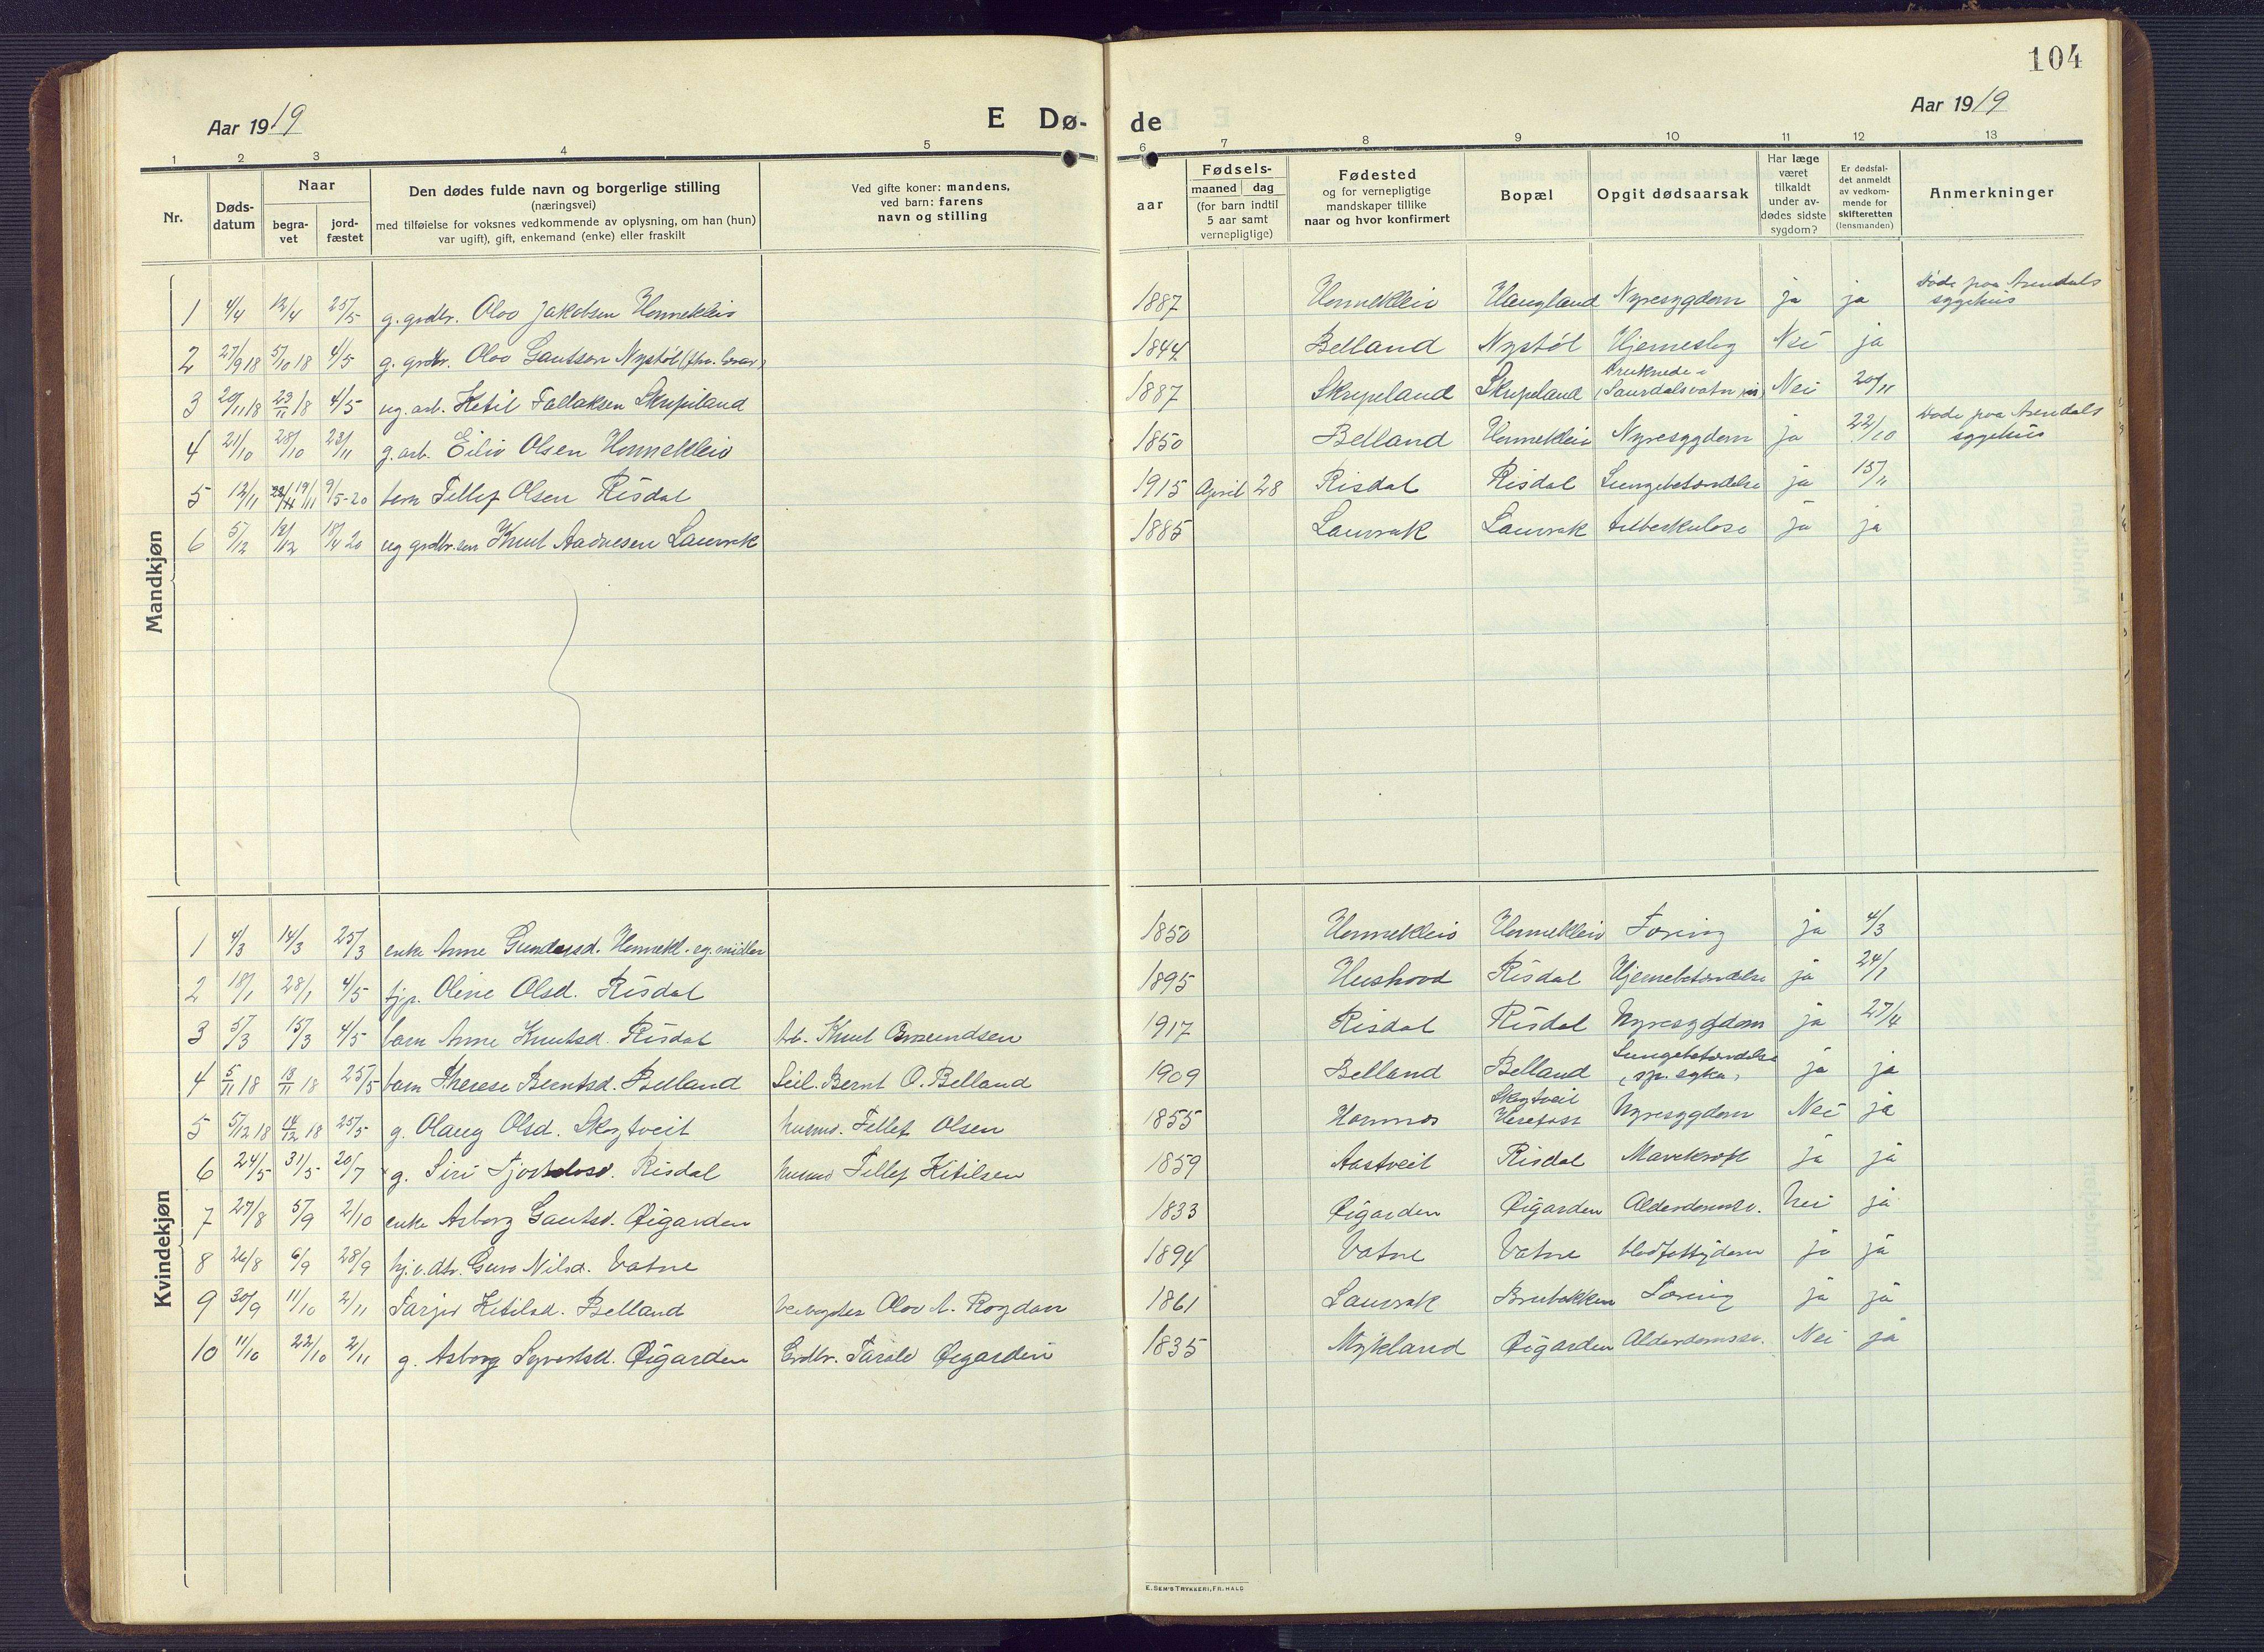 104
Aar 1919
E Dø-
de
Aar 1919
1 2 3 4 5 6 7 8 9 10 11 12 13
Nr.
Døds-
datum
Naar
begra-
vet
jord-
fæstet
Den dødes fulde navn og borgerlige stilling
(næringsvei)
med tilføielse for voksnes vedkommende av oplysning, om han (hun)
var ugift), gift, enkemand (enke) eller fraskilt
Ved gifte koner: mandens,
ved barn: farens
navn og stilling
aar
Fødsels-
maaned dag
(for barn indtil
5 aar samt
vernepligtige)
Fødested
og for vernepligtige
mandskaper tillike
naar og hvor konfirmert
Bopæl
Opgit dødsaarsak
Har læge
været
tilkaldt
under av-
dødes sidste
sygdom?
Er dødsfal-
det anmeldt
av vedkom-
mende for
skifteretten
(lensmanden)
Anmerkninger
Mandkjøn
1 4/4 12/4 25/5 g. grdbr. Olav Jakobsen Honnekleiv 1887 Honnekleiv Haugland Nyresygdom ja ja Døde paa Arendals
sygehus
2 27/9 18 5/10 18 4/5 g. grdbr. Olav Gautsen Nystøl 1844 Belland Nystøl Hjerneslag Nei ja
3 20/11 18 29/11 18 4/5 ug. arb. Ketil Tallaksen Skripeland 1887 Skripeland Skripeland Druknede i
Nei 20/11
4 21/10 28/10 23/11 g. arb. Eiliv Olsen Honnekleiv 1850 Belland Honnekleiv Nyresygdom ja 22/10 Døde paa Arendals
sygehus
5 12/11 19/11 9/5-20 barn Tellef Olsen Risdal 1915 April 28 Risdal Risdal Lungebetændelse ja 15/11
6 5/12 12/12 18/4 20 ug grdbr.søn Knut Aadnesen Laurak 1885 Laurak Laurak tuberkulose ja ja
Kvindekjøn
1 4/3 14/3 25/3 enke Anne Gundersd. Honnekl. eg. midler 1850 Honnekleiv Honnekleiv Tæring ja 4/3
2 18/1 28/1 4/5 tjp. Oline Olsd. Risdal 1895 Hushovd Risdal Hjernebetændelse ja 24/1
3 5/3 15/3 4/5 barn Anne Knutsd. Risdal Arb. Knut Omundsen 1917 Risdal Risdal Nyresygdom ja 27/4
4 5/11 18 13/11 18 25/5 barn Therese Berntsd. Belland Leil. Bernt O. Belland 1909 Belland Belland Lungebetændelse
(sp. syke) ja ja
5 5/12 18 14/12 18 25/5 g. Olaug Olsd. Skogtveit husmd. Tellef Olsen 1855 Skogtveit
Herefoss Nyresygdom Nei ja
6 24/5 31/5 20/7 g. Siri Risdal husmd Tellef Ketilsen 1859 Aastveit Risdal Mavekræft ja ja
7 27/8 5/9 2/10 enke Asborg Gautsd. Øigarden 1833 Øigarden Øigarden Alderdomssv. Nei ja
8 26/8 6/9 28/9 hj.v. dtr. Guro Nilsd. Vatne 1894 Vatne Vatne ja ja
9 30/9 11/10 2/11 Tarjer Ketilsd. Belland Veivogter Olav A. Rogdan 1861 Laurak Brubakken Tæring ja ja
10 11/10 22/10 2/11 g. Asborg Syvertsd. Øigarden Grdbr. Tarald Øigarden 1835 Mykland Øigarden Alderdomssv. Nei ja
E. SEM'S TRYKKERI, FR. HALD